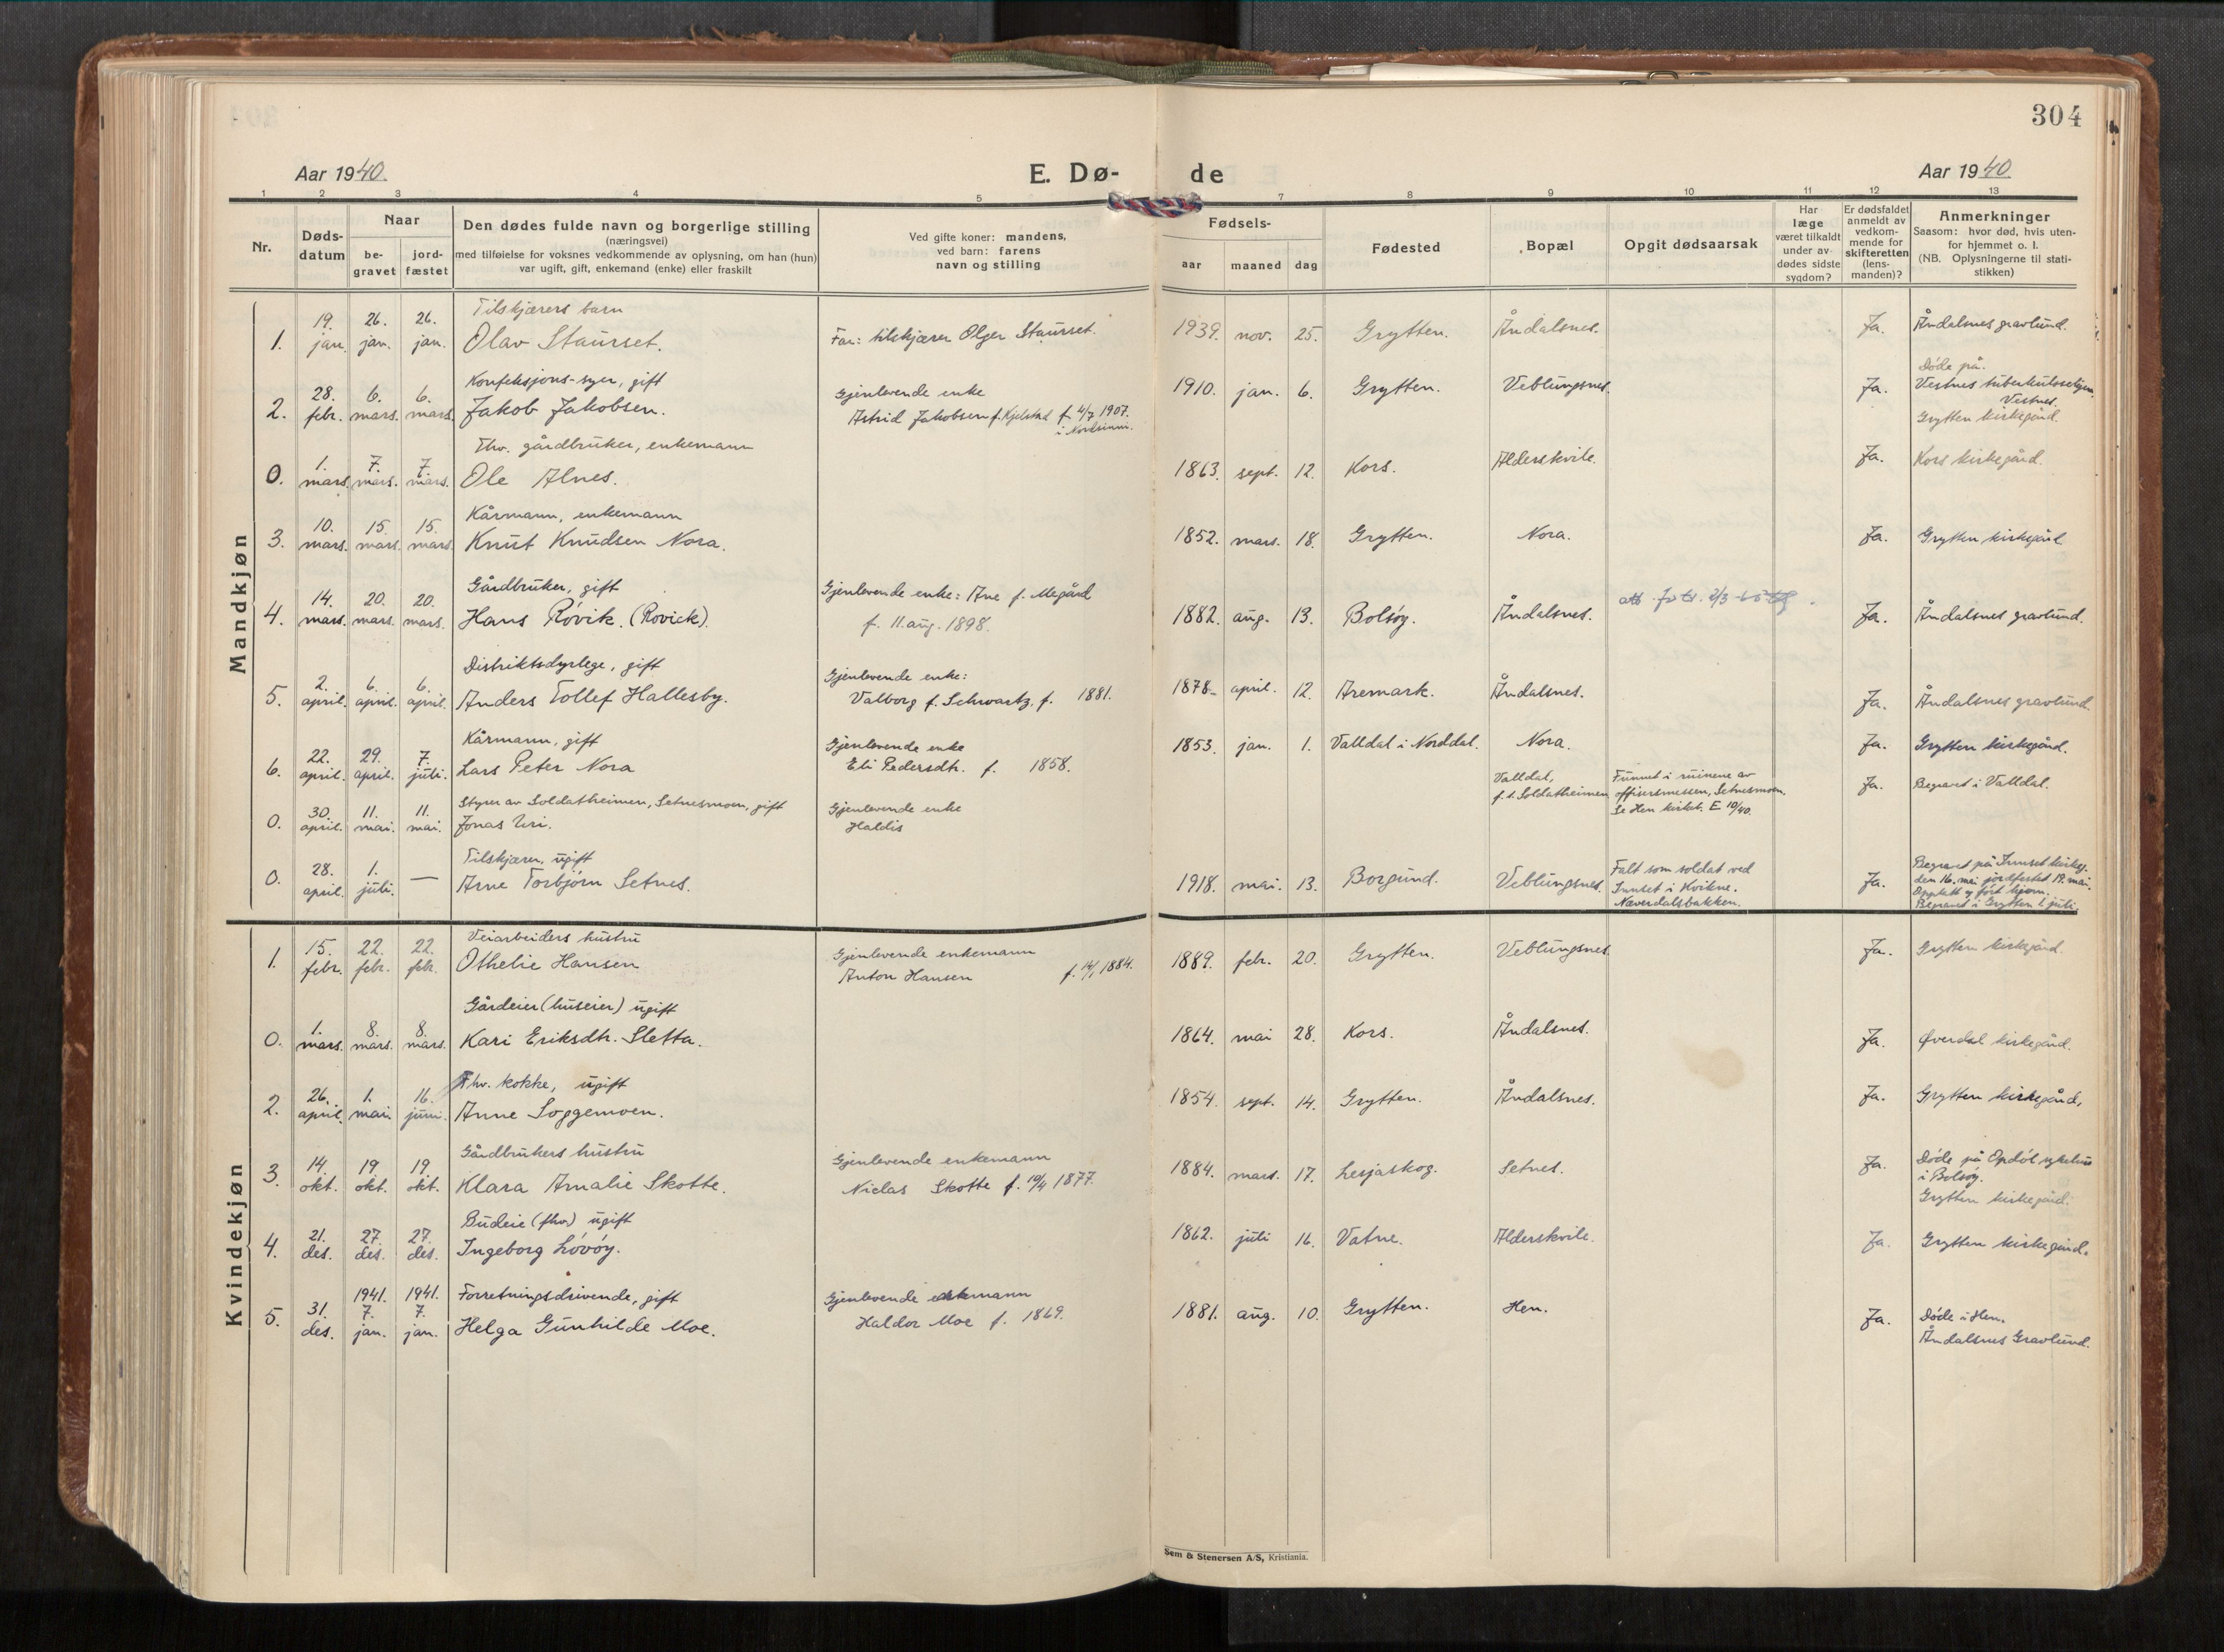 304
Aar 1940.
E. Dø-
de
Aar 1940
1 2 3 4 5 7 8 9 10 11 12 13
Nr.
Døds-
datum
Naar
be-
gravet
jord-
fæstet
Den dødes fulde navn og borgerlige stilling
(næringsvei)
med tilføielse for voksnes vedkommende av oplysning, om han (hun)
var ugift, gift, enkemand (enke) eller fraskilt
Ved gifte koner: mandens,
ved barn: farens
navn og stilling
Fødsels-
aar maaned dag
Fødested
Bopæl
Opgit dødsaarsak
Har
læge
været tilkaldt
under av-
dødes sidste
sygdom?
Er dødsfaldet
anmeldt av
vedkom-
mende for
skifteretten
(lens-
manden)?
Anmerkninger
Saasom: hvor død, hvis uten-
for hjemmet o. l.
(NB. Oplysningerne til stati-
stikken)
Mandkjøn
Tilskjærers barn
1. 19. jan. 26. jan. 26. jan. Olav Staurset. Far: tilskjærer Olger Staurset. 1939. nov. 25. Grytten. Åndalsnes. Ja. Åndalsnes gravlund.
Konfeksjons-syer, gift
2. 28. febr. 6. mars. 6. mars. Jakob Jakobsen. Gjenlevende enke
Astrid Jakobsen f. Kjelstad f. 4/7 1907.
i Nordsinni.
1910. jan. 6. Grytten. Veblungsnes. Ja. Døde på
Vestnes tuberkulosehjem
Vestnes.
Grytten kirkegård.
Fhv. gårdbruker, enkemann
0. 1. mars. 7. mars. 7. mars. Ole Alnes. 1863. sept. 12. Kors. Alderskvile. Ja. Kors kirkegård.
Kårmann, enkemann
3. 10. mars. 15. mars. 15. mars. Knut Knudsen Nora. 1852. mars. 18. Grytten. Nora. Ja. Grytten kirkegård
Gårdbruker, gift
4. 14. mars. 20. mars. 20. mars. Hans Røvik. (Rovick). Gjenlevende enke: Ane f. Megård
f. 11. aug. 1898.
1882. aug. 13. Bolsøy. Åndalsnes. Ja. Åndalsnes gravlund.
Distriktsdyrlege, gift
5. 2. april. 6. april. 6. april. Anders Tollef Hallesby. Gjenlevende enke:
Valborg f. Schwartz. f. 1881.
1878. april. 12. Aremark. Åndalsnes. Ja. Åndalsnes gravlund.
Kårmann, gift
6. 22. april. 29. april. 7. juli. Lars Peter Nora Gjenlevende enke
Eli Pedersdtr. f. 1858.
1853. jan. 1. Valldal i Norddal. Nora. Ja. Grytten kirkegård.
Styrer av Soldatheimen, Setnesmoen, gift
0. 30. april. 11. mai. 11. mai. Jonas Uri. Gjenlevende enke
Haldis
Valldal,
f. t. Soldatheimen
Funnet i ruinene av
offisersmessen, Setnesmoen.
Se Hen kirkeb. E 10/40.
Ja. Begravet i Valldal.
Tilskjærer, ugift
0. 28. april. 1. juli. — Arne Torbjørn Setnes. 1918. mai. 13. Borgund. Veblungsnes. Falt som soldat ved
Innset i Kvikne.
Næverdalsbakken.
Ja. Begravet på Innset kirkeg.
den 16. mai jordfestet 19. mai.
Opptatt og ført hjem.
Begravet i Grytten 1. juli.
Kvindekjøn
Veiarbeiders hustru
1. 15. febr. 22. febr. 22. febr. Othelie Hansen Gjenlevende enkemann
Anton Hansen f. 14/1 1884.
1889. febr. 20. Grytten. Veblungsnes Ja. Grytten kirkegård.
Gårdeier (huseier) ugift
0. 1. mars. 8. mars. 8. mars. Kari Eriksdtr. Sletta. 1864. mai 28. Kors. Åndalsnes. Ja. Øverdal kirkegård.
Fhv. kokke, ugift
2. 26. april. 1. mai 16. juni. Anne Soggemoen. 1854. sept. 14. Grytten. Åndalsnes. Ja. Grytten kirkegård.
Gårdbrukers hustru
3. 14. okt. 19. okt. 19. okt. Klara Amalie Skotte. Gjenlevende enkemann
Niclas Skotte f. 10/4 1877.
1884. mars. 17. Lesjaskog. Setnes. Ja. Døde på Opdøl sykehus
i Bolsøy.
Grytten kirkegård.
Budeie (fhv.) ugift
4. 21. des. 27. des. 27. des. Ingeborg Løvøy. 1862. juli 16. Vatne. Alderskvile. Ja. Grytten kirkegård.
Forretningsdrivende, gift
5. 31. des. 1941. 7. jan. 1941. 7. jan. Helga Gunhilde Moe. Gjenlevende enkemann
Haldor Moe f. 1869.
1881. aug. 10. Grytten. Hen. Ja. Døde i Hen.
Åndalsnes Gravlund.
Sem & Stenersen A/S, Kristiania.